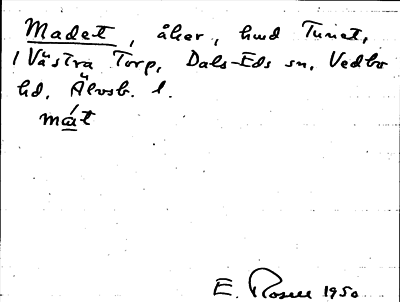 Madet, åker, hmd Tunet,
1 Västra Torp, Dals-Eds sn, Vedbo
hd, Älvsb. l.
mát
E. Rosell 1950